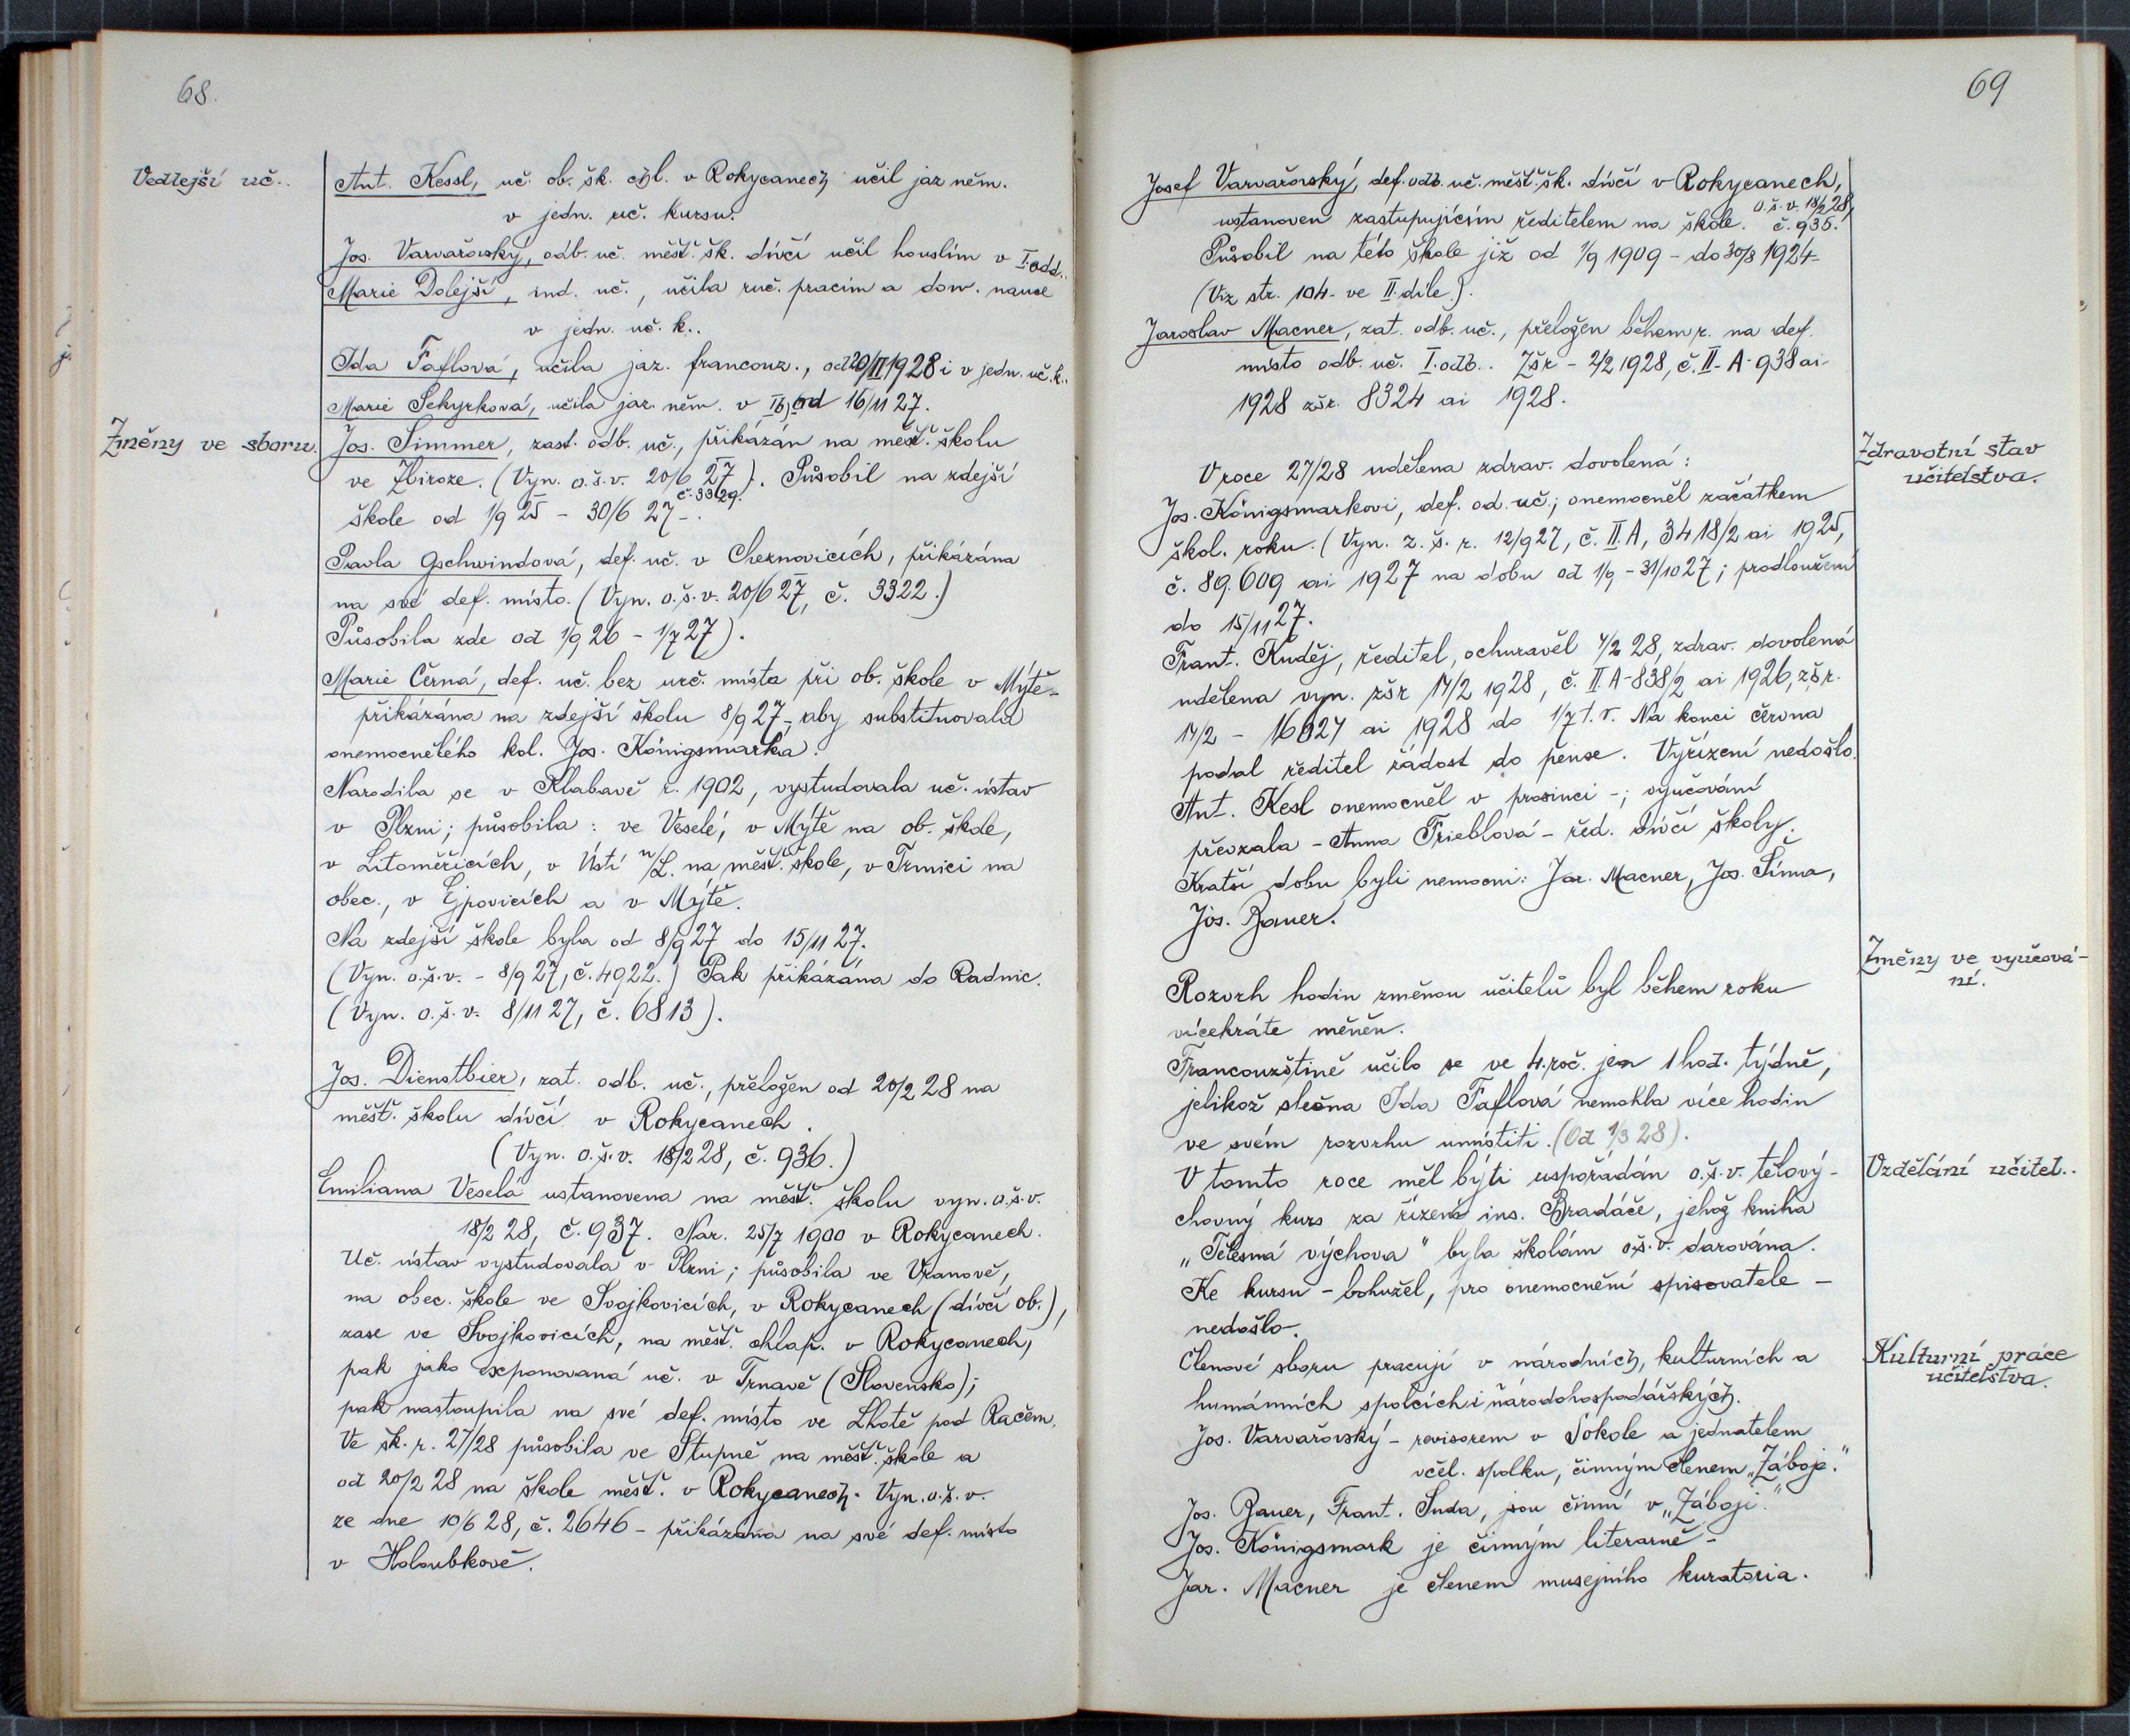 68.
Vedlejší uč..
Ant. Kessl, uč. ob. šk. chl. v Rokycanech učil jaz něm.
v jedn. uč. kursu.
Jos. Varvařovský, odb. uč. měšť. šk. dívčí učil houslím v I. odd..
Marie Dolejší, ind. uč., učila ruč. pracím a dom. nauce
v jedn. uč. k..
Ida Faflová, učila jaz. francouz., od 20/II 1928 i v jedn. uč. k..
Marie Sekyrková, učila jaz. něm. v Ib) od 16/11 27.
Změny ve sboru.
Jos. Simmer, zast. odb. uč., přikázán na měšť. školu
ve Zbiroze. (Vyn. o.š.v. 20/6 27). Působil na zdejší
č. 3329.
škole od 1/9 25 - 30/6 27-.
Pavla Gschwindová, def. uč. v Cheznovicích, přikázána
na své def. místo. (Vyn. o.š.v. 20/6 27, č. 3322.)
Působila zde od 1/9 26 - 1/7 27).
Marie Černá, def. uč. bez urč. místa při ob. škole v Mýtě-
přikázána na zdejší školu 8/9 27- aby substituovala
onemocnělého kol. Jos. Königsmarka.
Narodila se v Klabavě r. 1902, vystudovala uč. ústav
v Plzni; působila: ve Veselé, v Mýtě na ob. škole,
v Litoměřicích, v Ústí n/L. na měšť. škole, v Trmici na
obec., v Ejpovicích a v Mýtě.
Na zdejší škole byla od 8/9 27 do 15/11 27.
(Vyn. o.š.v. - 8/9 27, č. 4922.) Pak přikázána do Radnic.
(Vyn. o.š.v. 8/11 27, č. 6813).
Jos. Dienstbier, zat. odb. uč., přeložen od 20/2 28 na
měšť. školu dívčí v Rokycanech.
(Vyn. o.š.v. 18/2 28, č. 936.)
Emiliana Veselá ustanovena na měšť. školu vyn. o.š.v.
18/2 28, č. 937. Nar. 25/7 1900 v Rokycanech.
Uč. ústav vystudovala v Plzni; působila ve Vranově,
na obec. škole ve Svojkovicích, v Rokycanech (dívčí ob.),
zase ve Svojkovicích, na měšť. chlap. v Rokycanech,
pak jako exponovaná uč. v Trnavě (Slovensko);
pak nastoupila na své def. místo ve Lhotě pod Račem.
Ve šk. r. 27/28 působila ve Stupně na měšť. škole a
od 20/2 28 na škole měšť. v Rokycanech. Vyn. o.š.v.
ze dne 10/6 28, č. 2646 - přikázána na své def. místo
v Holoubkově.
69
Josef Varvařovský, def. odb. uč. měšť. šk. dívčí v Rokycanech,
o.š.v. 18/2 28,
ustanoven zastupujícím ředitelem na škole. č. 935.
Působil na této škole již od 1/9 1909 - do 30/8 1924-
(Viz str. 104- ve II. díle.).
Jaroslav Macner, zat. odb. uč., přeložen během r. na def.
místo odb. uč. I. odb.. Zšr - 2/2 1928, č. II-A-938 ai-
1928 zšr. 8324 ai 1928.
Zdravotní stav
učitelstva.
V roce 27/28 udělena zdrav. dovolená:
Jos. Königsmarkovi, def. od. uč.; onemocněl začátkem
škol. roku. (Vyn. z. š. r. 12/9 27, č. II. A, 3418/2 ai 1925,
č. 89.609 ai 1927 na dobu od 1/9 - 31/10 27; prodloužení
do 15/11 27.
Frant. Kuděj, ředitel, ochuravěl 4/2 28, zdrav. dovolená
udělena vyn. zšr 17/2 1928, č. II. A-838/2 ai 1926, zšr.
17/2 - 16827 ai 1928 do 1/7 t. r. Na konci června
podal ředitel žádost do pense. Vyřízení nedošlo.
Ant. Kesl onemocněl v prosinci -; vyučování
převzala - Anna Frieblová - řed. dívčí školy.
Kratší dobu byli nemocni: Jar. Macner, Jos. Šíma,
Jos. Bauer.
Změny ve vyučová-
ní.
Rozvrh hodin změnou učitelů byl během roku
vícekráte měněn.
Francouzštině učilo se ve 4. roč. jen 1 hod. týdně,
jelikož slečna Ida Faflová nemohla více hodin
ve svém rozvrhu umístiti. (Od 1/3 28).
Vzdělání učitel..
V tomto roce měl býti uspořádán o.š.v. tělový-
chovný kurs za řízení ins. Bradáče, jehož kniha
„Tělesná výchova“ byla školám o.š.v. darována.
Ke kursu - bohužel, pro onemocnění spisovatele -
nedošlo.
Kulturní práce
učitelstva.
Členové sboru pracují v národních, kulturních a
humánních spolcích i národohospodářských.
Jos. Varvařovský - revisorem v Sokole a jednatelem
včel. spolku, činným členem „Záboje.“
Jos. Bauer, Frant. Suda, jsou činní v „Záboji.“
Jos. Königsmark je činným literarně-
Jar. Macner je členem musejního kuratoria.